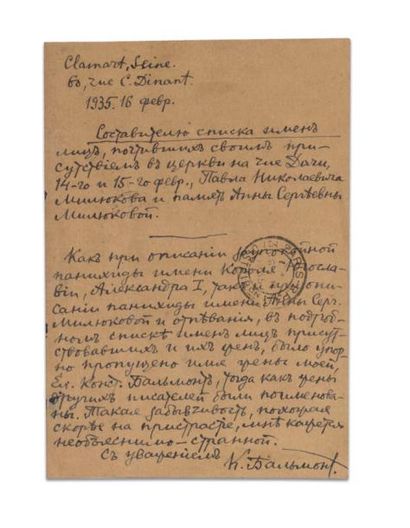 Clamart, Seine.
6 bis, rue C. Dinant.
1935. 16 февр.
Составителю списка имен
лицъ, почтившихъ своимъ при-
сутствіемъ въ церкви на rue Daru,
14-го и 15-го февр., Павла Николаевича
Милюкова и память Анны Сергѣевны
Милюковой.
Какъ при описаніи заупокойной
панихиды имени Короля Югосла-
віи, Александра I, такъ и при опи-
саніи панихиды имени Анны Серг.
Милюковой и отпѣванія, въ подроб-
номъ спискѣ именъ лицъ присут-
ствовавшихъ и ихъ женъ, было упор-
но пропущено имя жены моей,
Ел. Конст. Бальмонтъ, тогда какъ жены
другихъ писателей были поименова-
ны. Такая забывчивость, похожая
скорѣе на пристрастіе, мнѣ кажется
необъяснимо-странной.
Съ уваженіемъ
К. Бальмонтъ.
PARIS